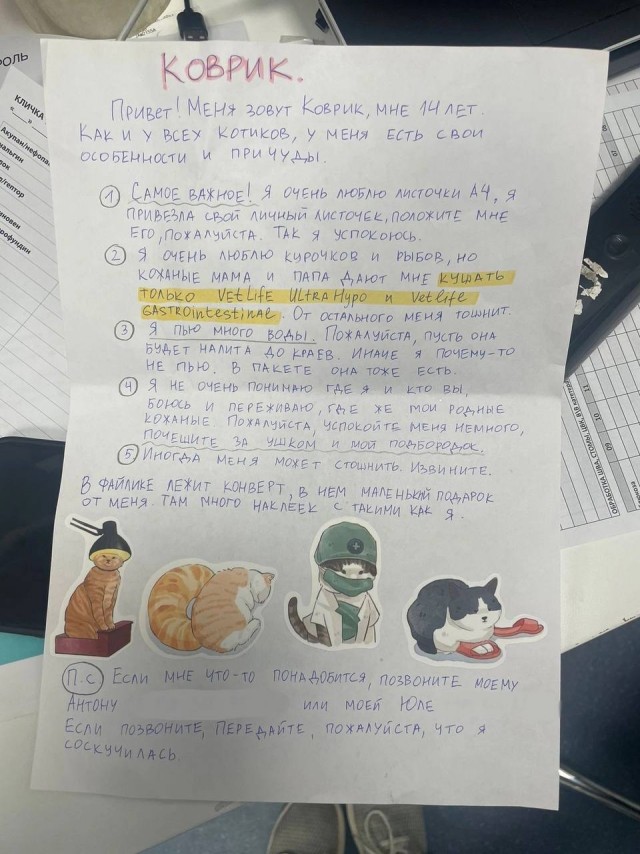 КОВРИК.
Привет! Меня зовут Коврик, мне 14 лет.
Как и у всех котиков, у меня есть свои
особенности и причуды.
① Самое важное! Я очень люблю листочки А4, я
привезла свой личный листочек, положите мне
его, пожалуйста. Так я успокоюсь.
② Я очень люблю курочков и рыбов, но
кожаные мама и папа дают мне кушать
только VetLife UltraHypo и Vetlife
GASTROintestinal. От остального меня тошнит.
③ Я пью много воды. Пожалуйста, пусть она
будет налита до краев. Иначе я почему-то
не пью. В пакете она тоже есть.
④ Я не очень понимаю где я и кто вы,
боюсь и переживаю, где же мои родные
кожаные Пожалуйста, успокойте меня немного,
почешите за ушком и мой подбородок.
⑤ Иногда меня может стошнить. Извините.
В файлике лежит конверт, в нем маленький подарок
от меня. Там много наклеек с такими как я.
П.с Если мне что-то понадобится, позвоните моему
Антону или моей Юле
Если позвоните, передайте, пожалуйста, что я
соскучилась
КЛИЧКА